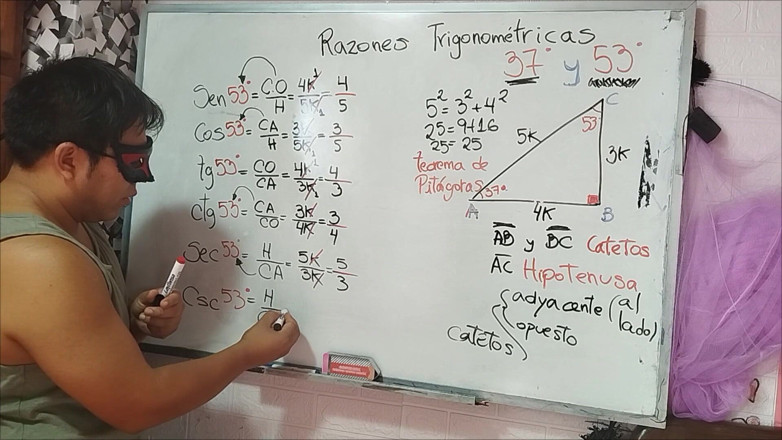 Razones Trigonométricas
37° y 53°
Sen 53° = CO/H = 4K/5K = 4/5
Cos 53° = CA/H = 3K/5K = 3/5
tg 53° = CO/CA = 4K/3K = 4/3
ctg 53° = CA/CO = 3K/4K = 3/4
Sec 53° = H/CA = 5K/3K = 5/3
Csc 53° = H
5² = 3² + 4²
25 = 9+16
25 = 25
teorema de
Pitágoras
C
53°
5K
3K
37°
A
4K
B
AB y BC Catetos
AC Hipotenusa
Catetos
adyacente (al
lado)
opuesto